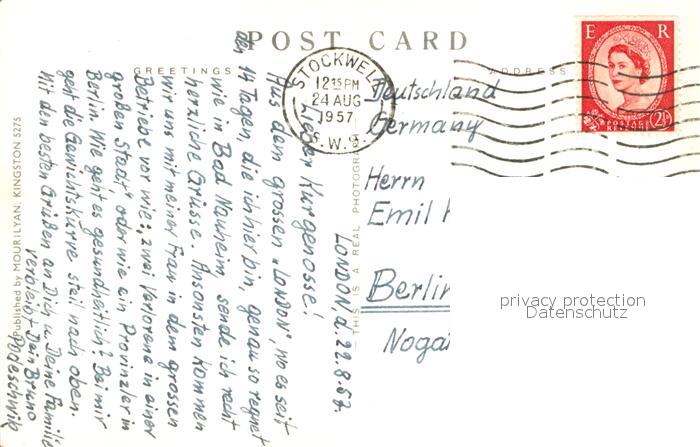 POST CARD
GREETINGS
ADDRESS
STOCKWELL
12 15 PM
24 AUG
1957
S.W.9.
E R
POSTAGE
REVENUE
2½
Deutschland
Germany
Herrn
Emil
Berlin
Nogat
privacy protection
Datenschutz
LONDON, d. 22.8.57.
Lieber Kurgenosse!
Aus dem grossen "LONDON", wo es seit
den 14 Tagen, die ich hier bin, genau so regnet
wie in Bad Nauheim sende ich recht
herzliche Grüsse. Ansonsten kommen
wir uns mit meiner Frau in dem grossen
Betriebe vor wie: "zwei Verlorene in einer
großen Stadt" oder wie ein Provinzler in
Berlin. Wie geht es gesundheitlich? Bei mir
geht die Gewichtskurve steil nach oben.
Mit den besten Grüßen an Dich u. Deine Familie
verbleibt Dein Bruno
THIS IS A REAL PHOTOGRAPH
Published by MOURILYAN, KINGSTON 5275